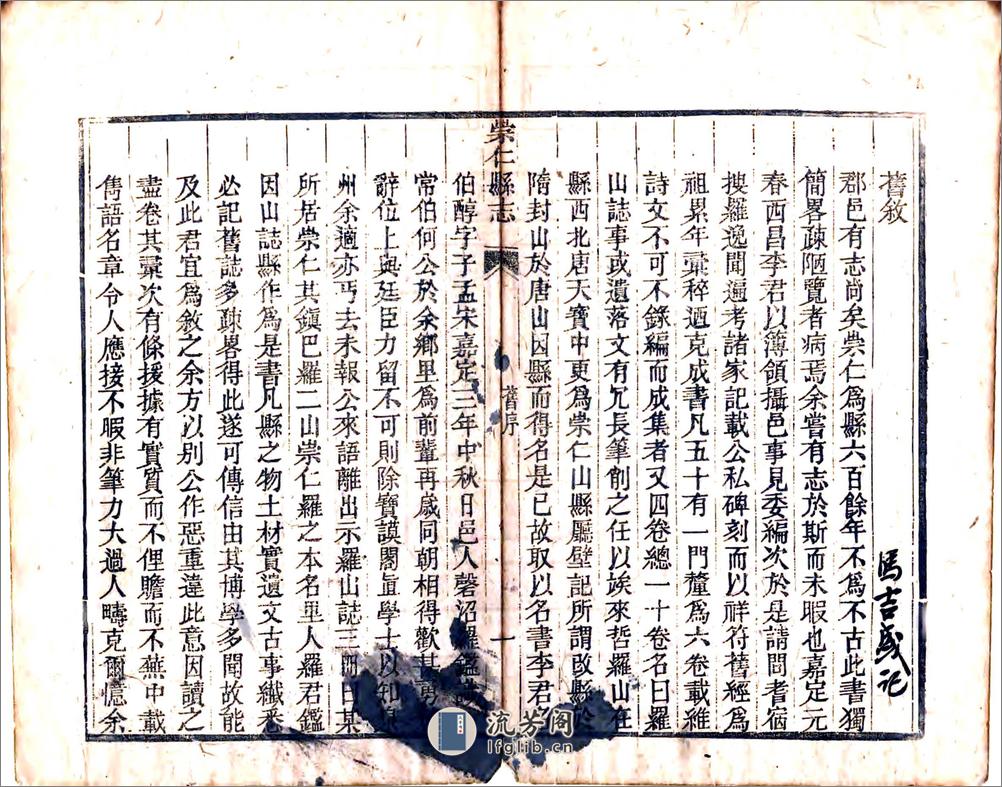 舊敘
馮吉彧記
郡邑有志尚矣崇仁爲縣六百餘年不爲不古此書獨
簡畧疎陋覽者病焉余嘗有志於斯而未暇也嘉定元
春西昌李君以簿領攝邑事見委編次於是請問耆宿
搜羅逸聞遍考諸家記載公私碑刻而以祥符舊經爲
祖累年彚稡迺克成書凡五十有一門釐爲六卷載維
詩文不可不錄編而成集者又四卷總一十卷名曰羅
山誌事或遺落文有冗長筆削之任以俟來哲羅山在
縣西北唐天寶中更爲崇仁山縣廳壁記所謂改縣於
隋封山於唐山因縣而得名是已故取以名書李君
崇仁縣志
舊序
一
伯醇字子孟宋嘉定三年中秋日邑人磬沼羅鑑
常伯何公於余鄉里爲前輩再歲同朝相得歡甚
辭位上與廷臣力留不可則除寶謨閣直學士以知
州余適亦丐去未報公來語離出示羅山誌三冊曰某
所居崇仁其鎮巴羅二山崇仁羅之本名里人羅君鑑
因山誌縣作爲是書凡縣之物土材實遺文古事纖悉
必記舊誌多疎畧得此遂可傳信由其博學多聞故能
及此君宜爲敘之余方以別公作惡重違此意因讀之
盡卷其彚次有條援據有實質而不俚贍而不蕪中載
雋語名章令人應接不暇非筆力大過人疇克爾憶余
流芳阁
lfglib.cn